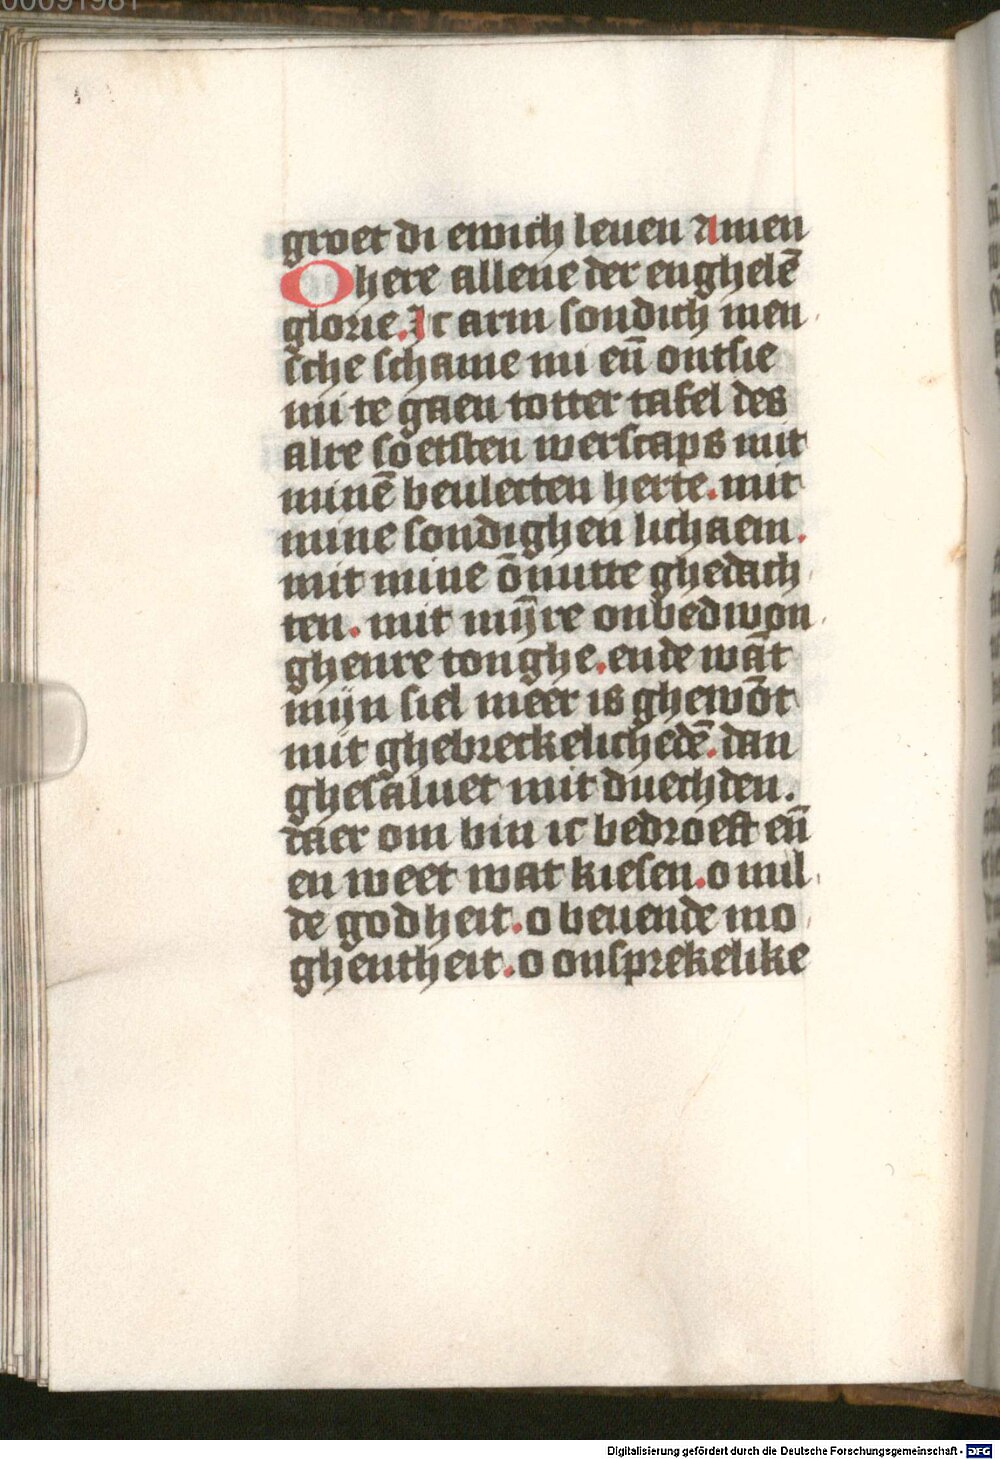 00091981
groet di ewich leuen Amen
O here allene der enghelē
glorie. Ic arm sondich men
sche schame mi eñ ontsie
mi te gaen totter tafel des
alre soetsten werscaps mit
minē beulecten herte. mit
mine sondighen lichaem.
mit mine ōnutte ghedach
ten. mit mȳre onbedwon
ghenre tonghe. ende wāt
mijn siel meer is ghewōt
mit ghebreckelichedē. dan
ghesaluet mit duechden.
daer om bin ic bedroeft eñ
en weet wat kiesen. o mil
de godheit. o beuende mo
ghentheit. o onsprekelike
Digitalisierung gefördert durch die Deutsche Forschungsgemeinschaft - DFG